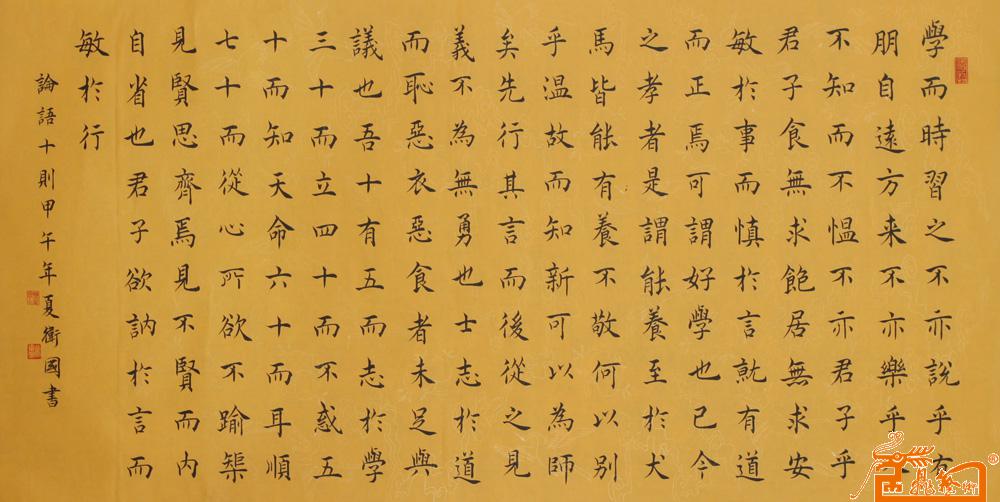 學而時習之不亦說乎有
朋自遠方来不亦樂乎
不知而不愠不亦君子乎
君子食無求飽居無求安
敏於事而慎於言就有道
而正焉可謂好學也已今
之孝者是謂能養至於犬
馬皆能有養不敬何以别
乎温故而知新可以為師
矣先行其言而後從之見
義不為無勇也士志於道
而恥惡衣惡食者未足與
議也吾十有五而志於學
三十而立四十而不惑五
十而知天命六十而耳順
七十而從心所欲不踰榘
見賢思齊焉見不賢而内
自省也君子欲訥於言而
敏於行
論語十則甲午年夏衛國書